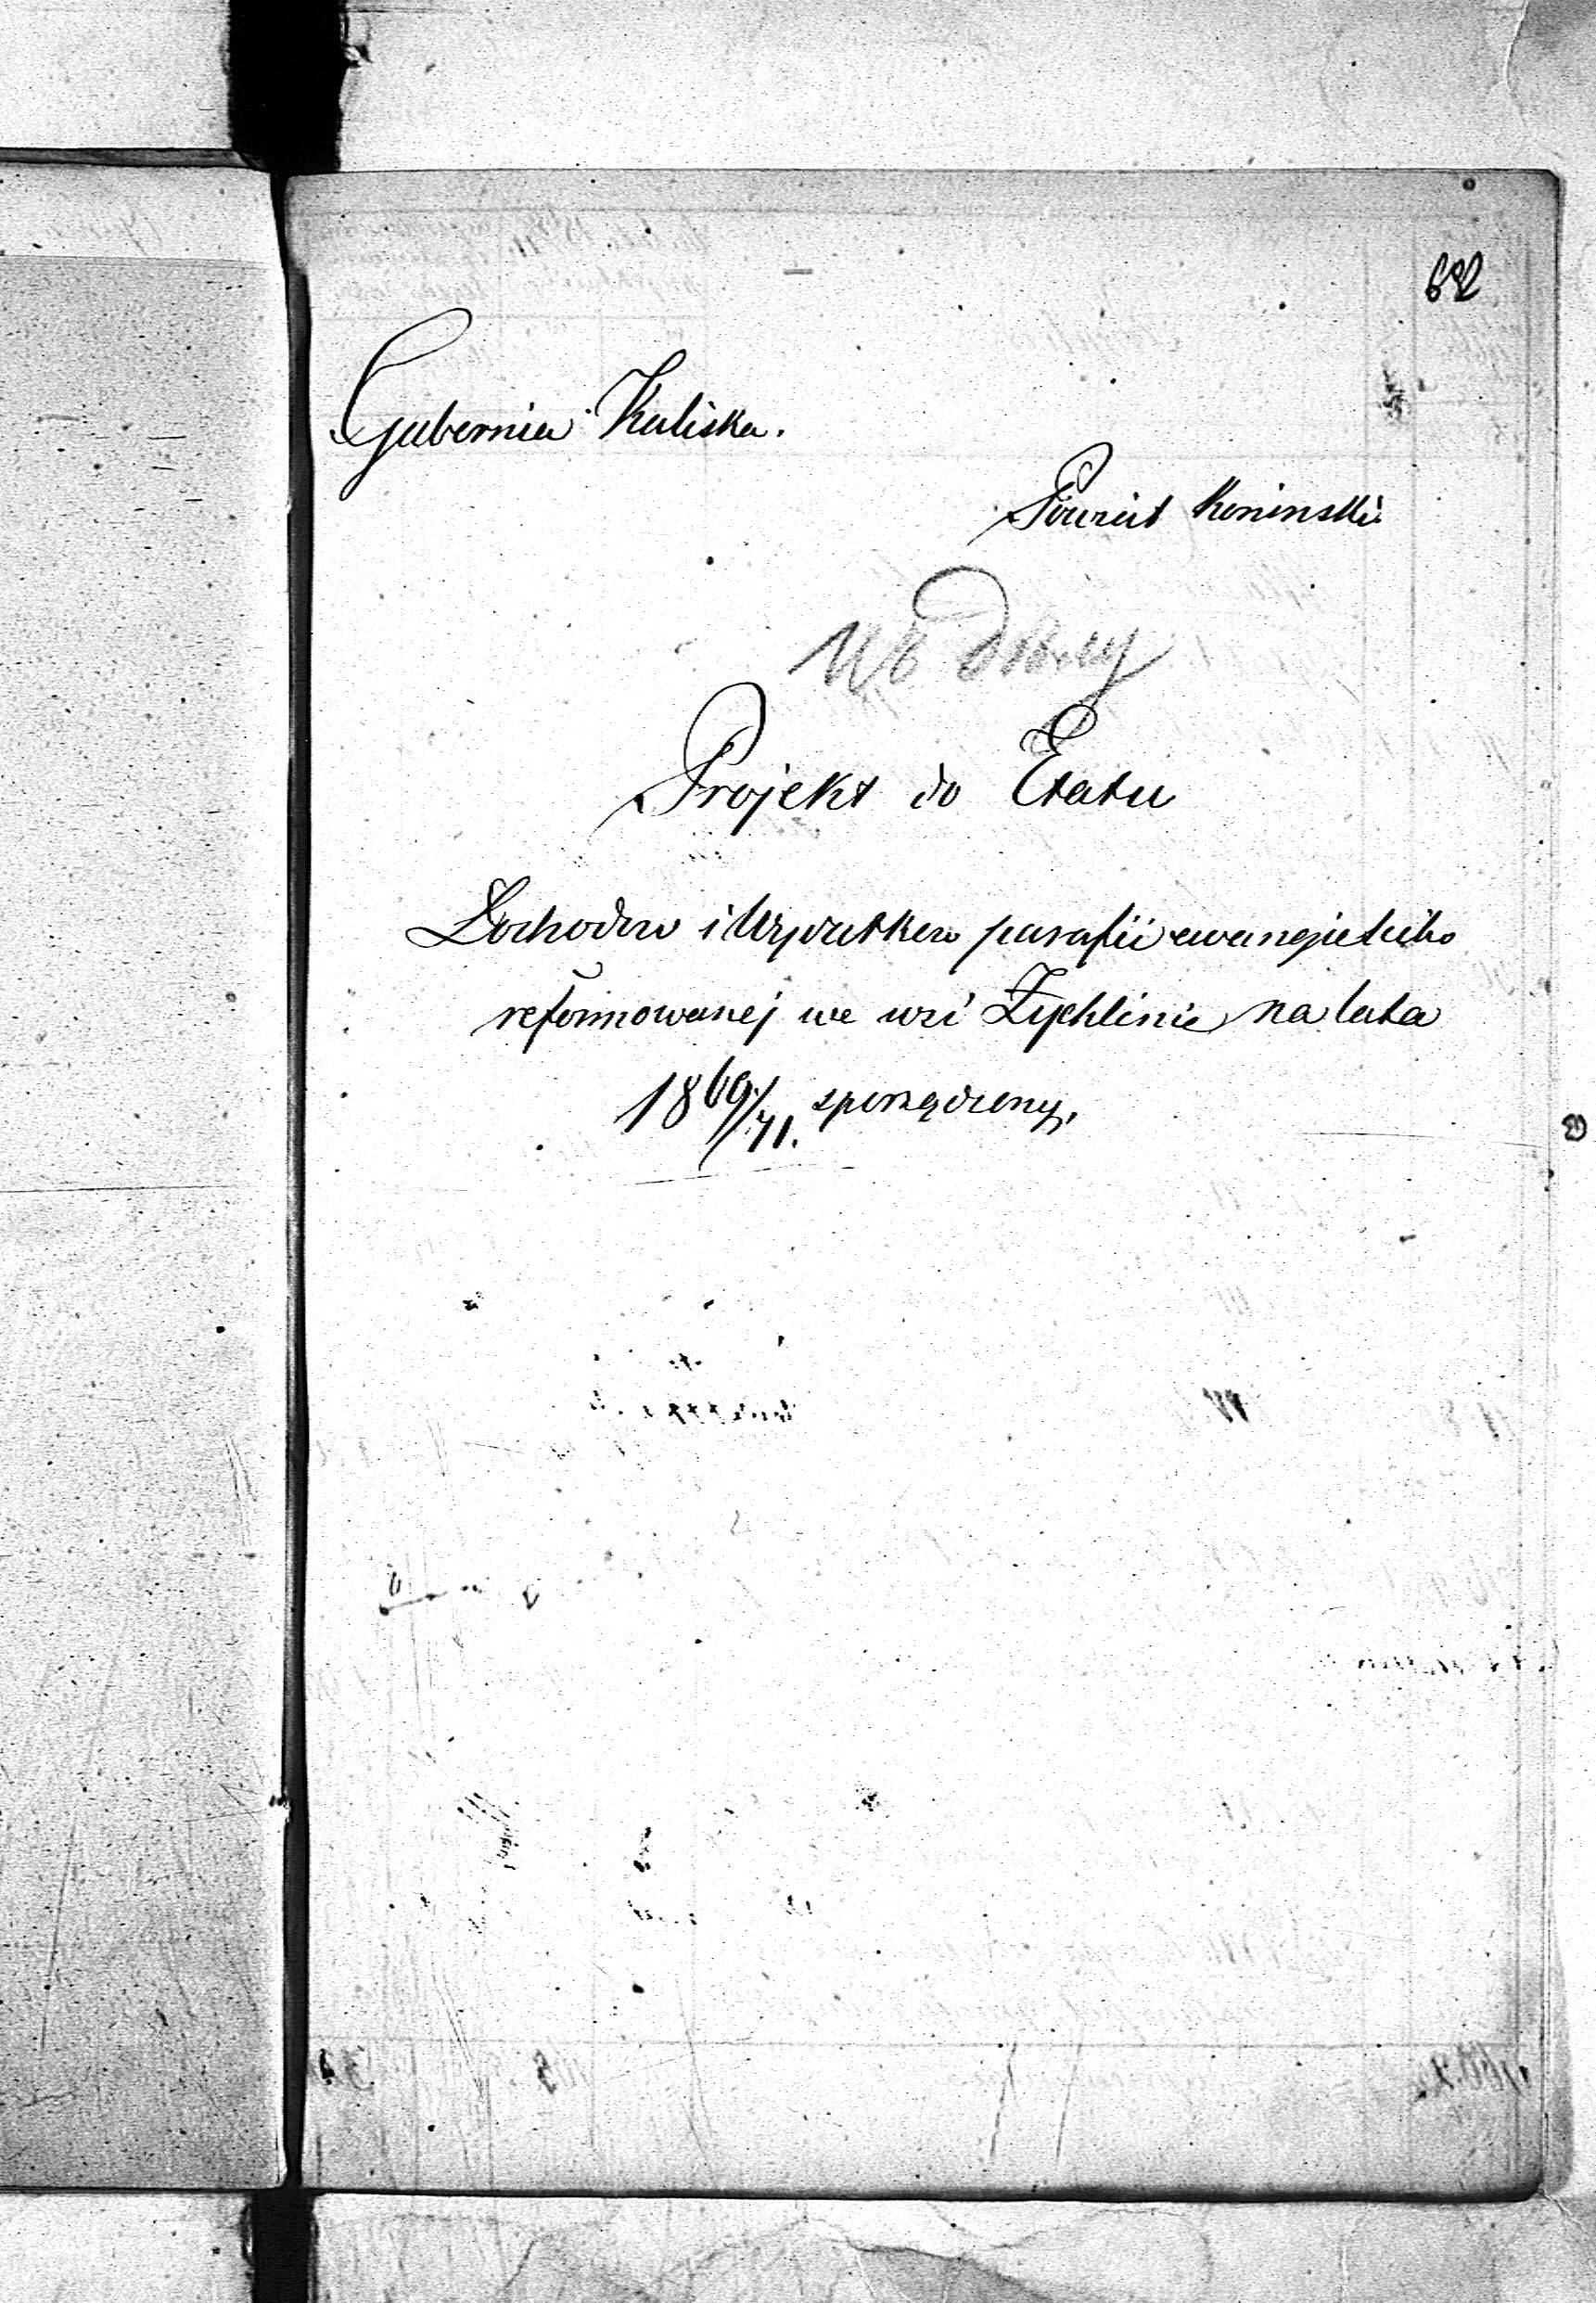 682
Gubernia Kaliska.
Powiat Koninski
Projekt do Etatu
Dochodow i Wydatkow parafii ewangielicko
reformowanej we wsi Żychlinie na lata
1869/71. sporządzony.